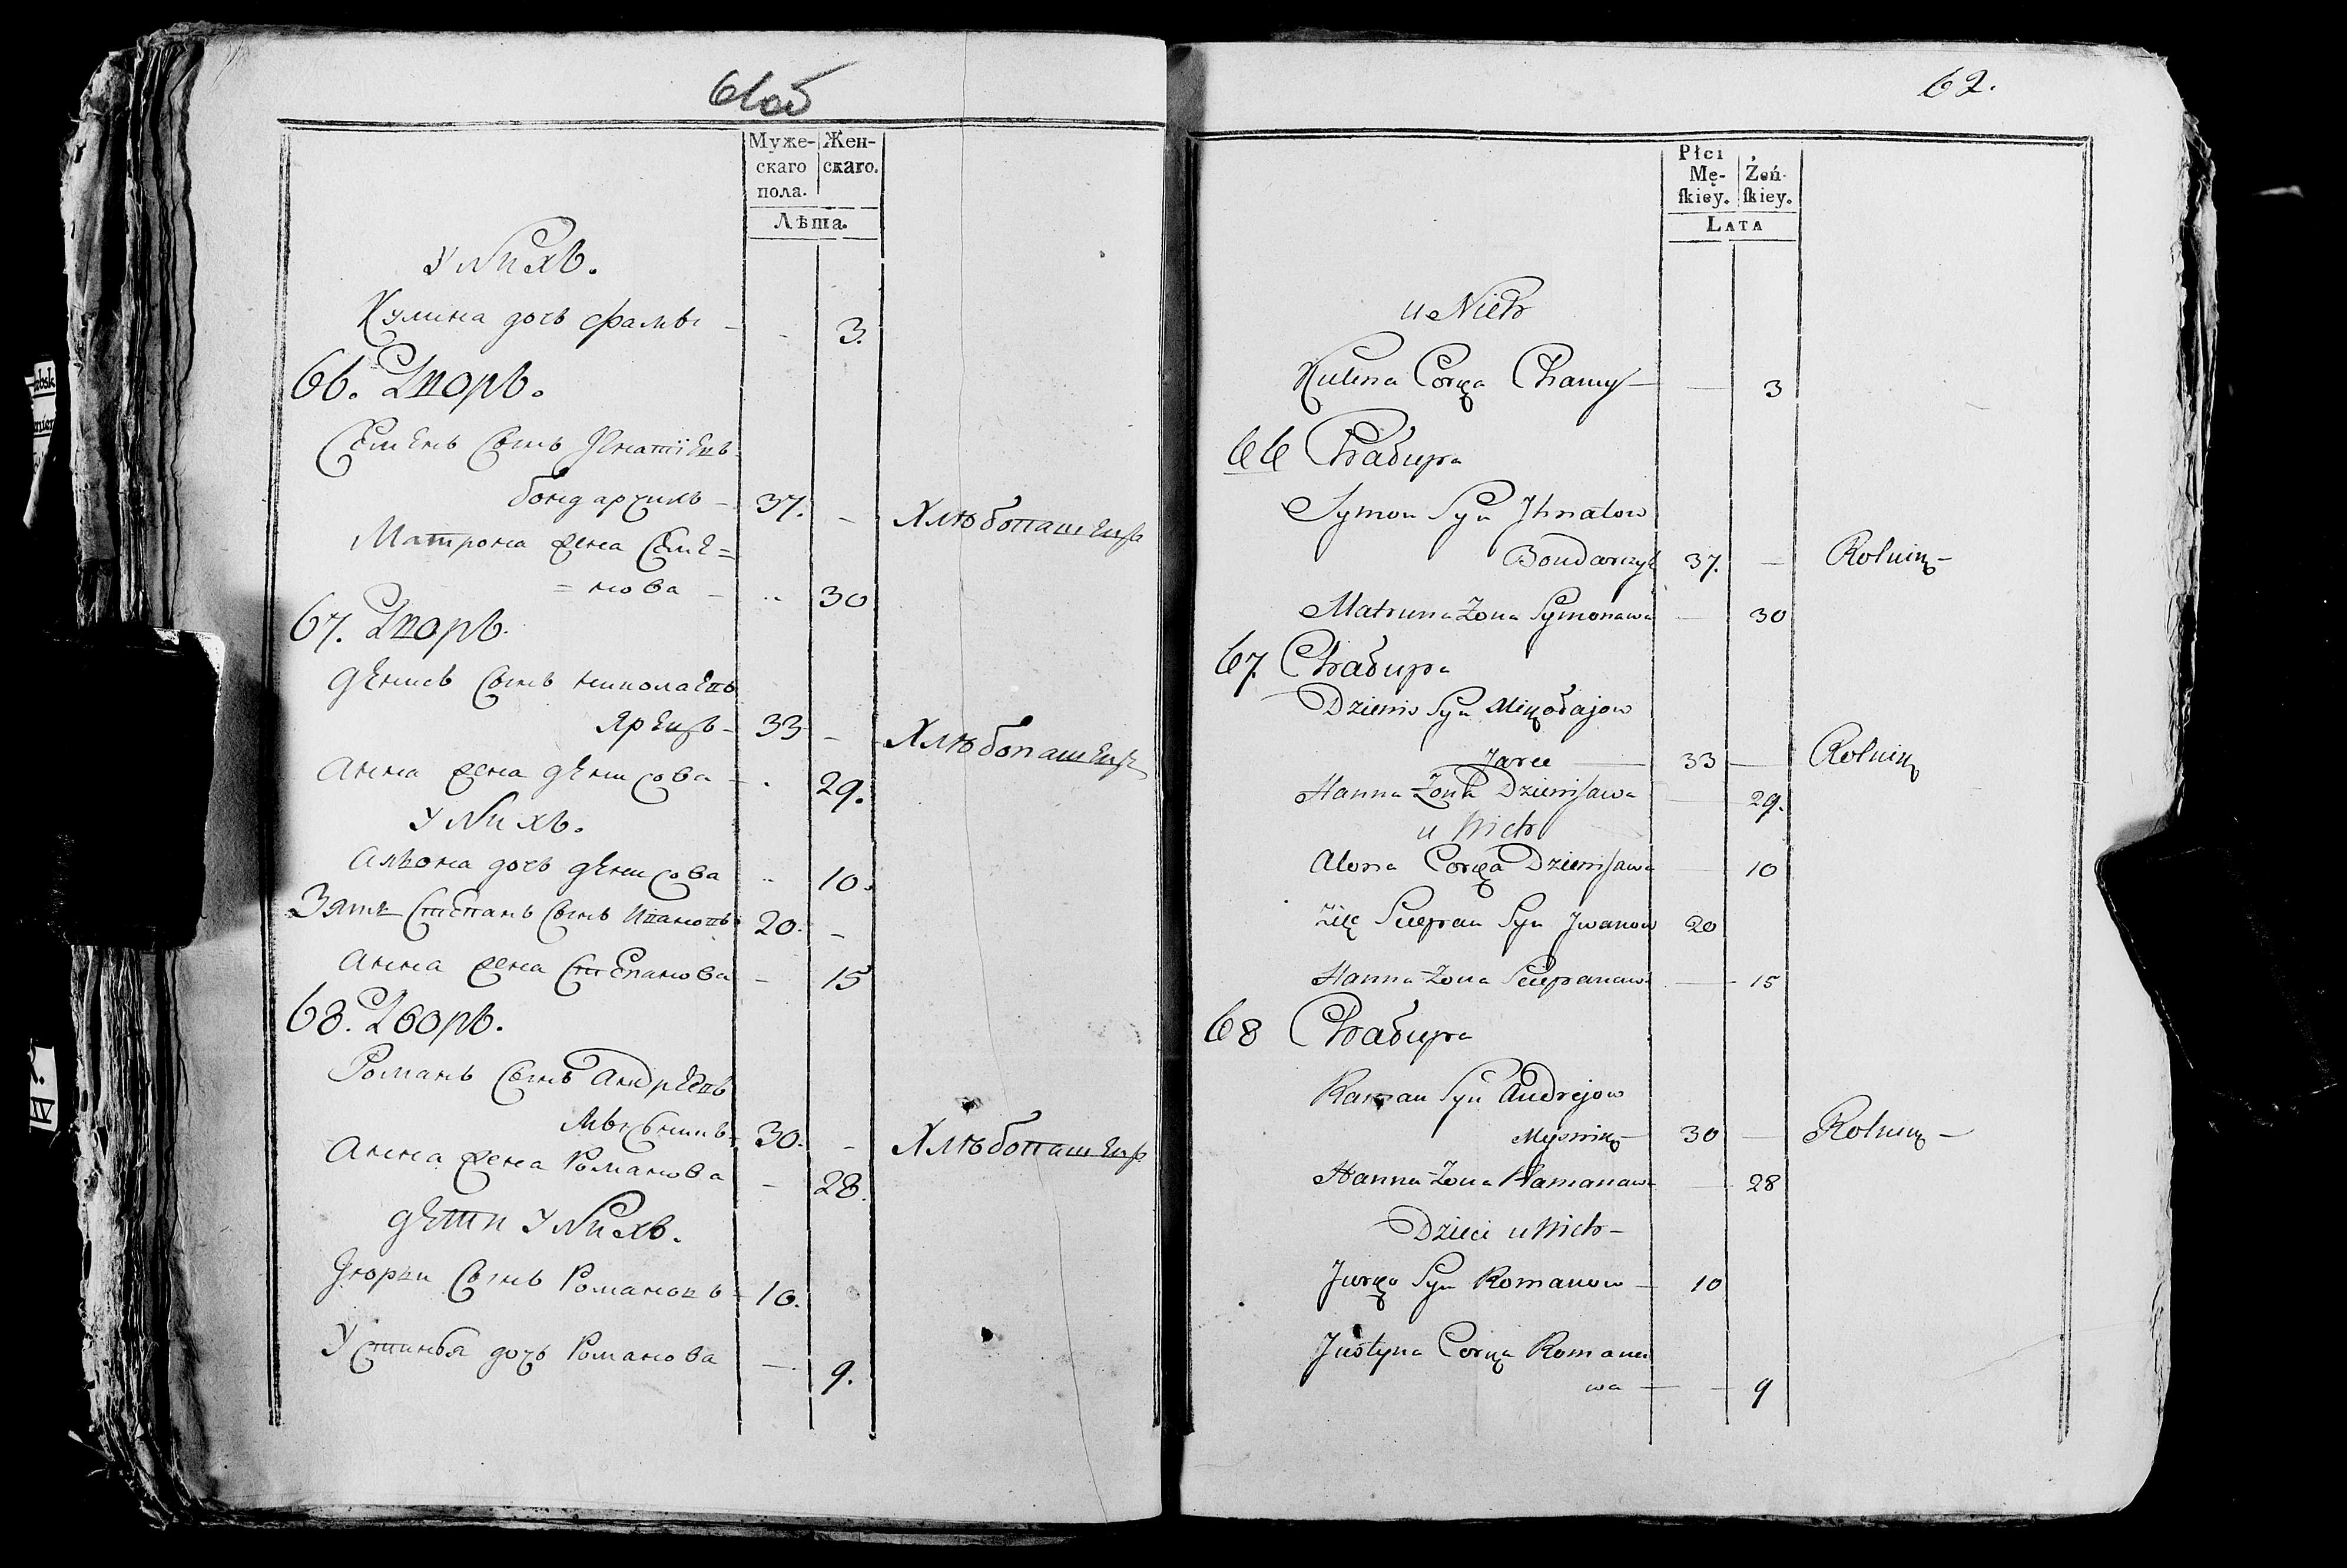 61об
Муже-
скаго
пола.
Жен-
скаго.
Лѣта.
У Нихъ.
Кулина дочь Фамы - - 3.
66. Дворъ.
Семенъ Сынъ Игнатіевъ
бондарчикъ - 37. - Хлѣбопашецъ
Матрона жена Семе=
=нова - .. 30
67. Дворъ.
Денисъ Сынъ николаевъ
Ярецъ - 33 - Хлѣбопашецъ
Анна жена денисова - . 29.
У Нихъ.
Алѣона дочь денисова .. 10.
Зять Степанъ Сынъ Ивановъ 20. -
Анна жена Степанова - 15
68. Дворъ.
Романъ Сынъ Андреевъ
30. - Хлѣбопашецъ
Анна жена Романова - 28.
дети У Нихъ.
Юрки Сынъ Романовъ - 10.
Устинья дочь Романова - 9.
62.
Płci
Mę-
ſkiey.
Żeń-
ſkiey.
LATA
u Nich
Kulina Corka Chamy - - 3
66 Chałupa
Symon Syn Ihnatow
Bondarczyk 37. - Rolnik -
Matruna Zona Symonawa - 30
67. Chałupa
Dzienis Syn Mikołajow
Jarec - 33 - Rolnik
Hanna Zona Dzienisawa - 29.
u Nich
Alona Corka Dzienisawa - 10
Zić Sciepan Syn Jwanow 20
Hanna Zona Sciepanawa - 15
68 Chałupa
Raman Syn Andrejow
Mysnik - 30 - Rolnik -
Hanna Zona Ramanawa - 28
Dzieci u Nich -
Jurko Syn Romanow - 10
Justyna Corka Romana
wa - - 9